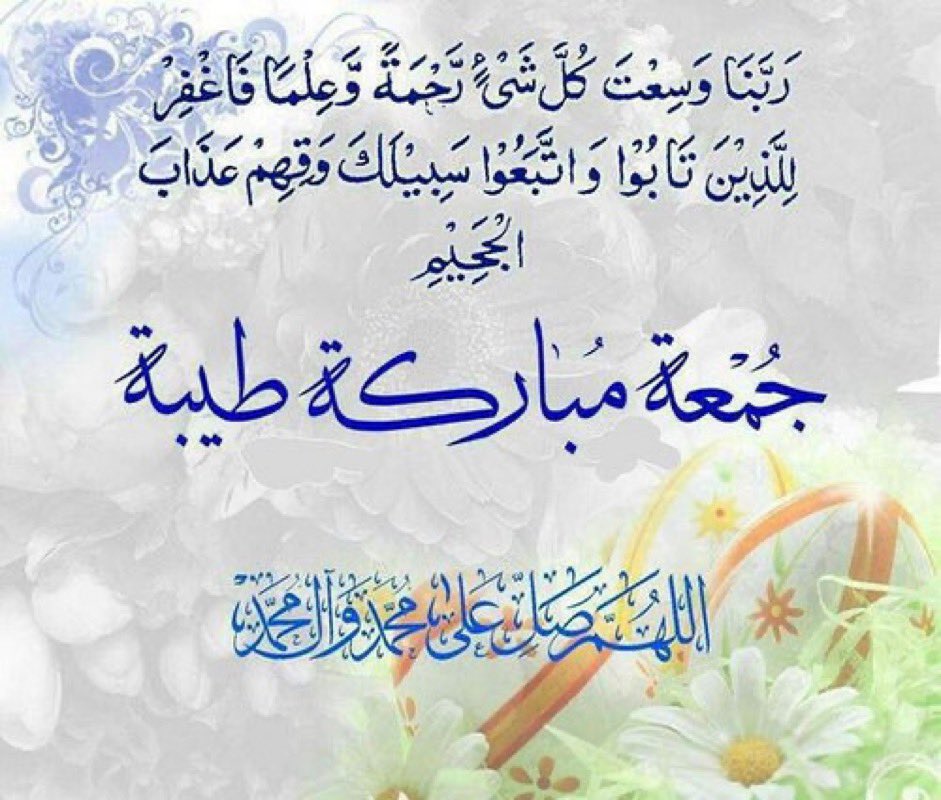 رَبَّنَا وَسِعْتَ كُلَّ شَيْءٍ رَّحْمَةً وَّعِلْمًا فَاغْفِرْ
لِلَّذِيْنَ تَابُوْا وَاتَّبَعُوْا سَبِيْلَكَ وَقِهِمْ عَذَابَ
الْجَحِيْمِ
جُمْعة مُباركة طيبة
اللهُمَّ صَلِّ عَلى مُحَمَّد وَآل مُحَمَّد